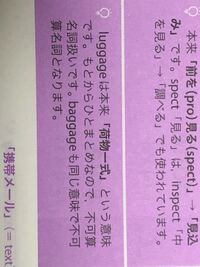 本来「前を(pro)見る(spect)」→「見込
み」です。spect「見る」は、inspect「中
を見る」→「調べる」でも使われています。
luggageは本来「荷物一式」という意味
です。もとからひとまとめなので、不可算
名詞扱いです。baggageも同じ意味で不可
算名詞となります。
「携帯メール」(= text